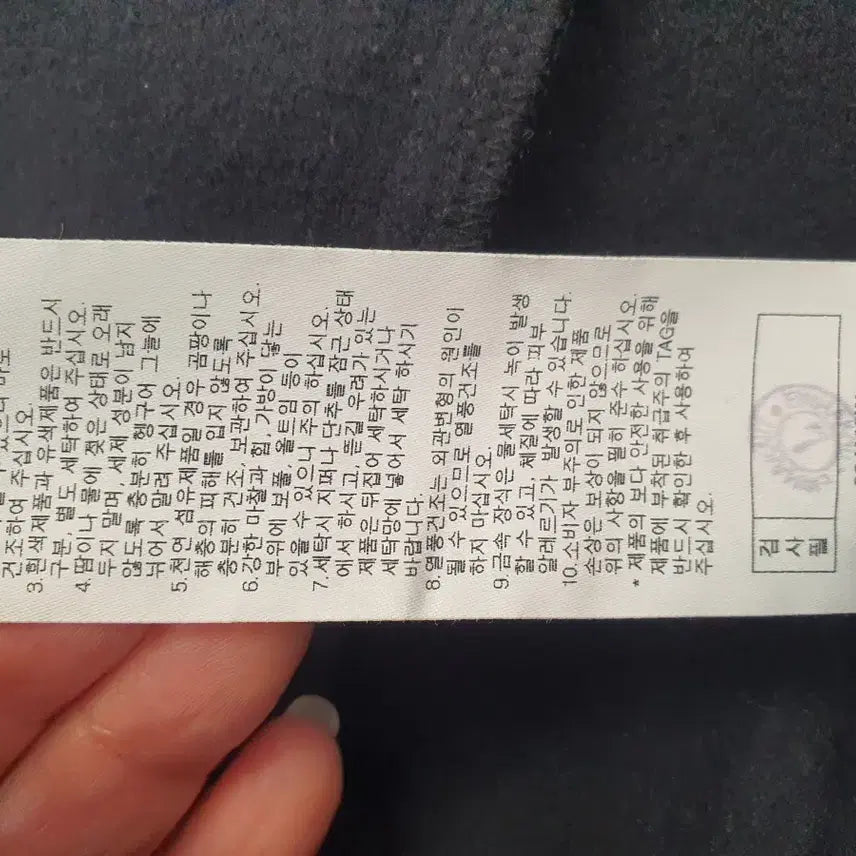 건조하여 주십시오.
3.흰색제품과 유색제품은 반드시
구분, 별도 세탁하여 주십시오.
4.땀이나 물에 젖은 상태로 오래
두지 말며, 세제 성분이 남지
않도록 충분히 헹구어 그늘에
뉘어서 말려 주십시오.
5.천연 섬유제품일 경우 곰팡이나
해충의 피해를 입지 않도록
충분히 건조, 보관하여 주십시오.
6.강한 마찰과 힘, 가방이 닿는
부위에 보풀, 올트임 등이
있을 수 있으니 주의 하십시오.
7.세탁시 지퍼나 단추를 잠근 상태
에서 하시고, 뜯길 우려가 있는
제품은 뒤집어 세탁하시거나
세탁망에 넣어서 세탁 하시기
바랍니다.
8.열풍건조는 외관변형의 원인이
될 수 있으므로 열풍건조를
하지 마십시오.
9.금속 장식은 물세탁시 녹이 발생
할 수 있고, 체질에 따라 피부
알레르기가 발생할 수 있습니다.
10.소비자 부주의로 인한 제품
손상은 보상이 되지 않으므로
위의 사항을 필히 준수 하십시오.
* 제품의 보다 안전한 사용을 위해
제품에 부착된 취급주의 TAG을
반드시 확인한 후 사용하여
주십시오.
검사필